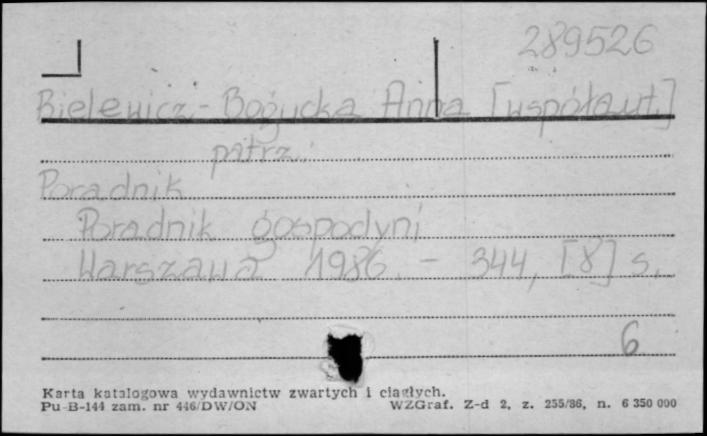 289526
Bielewicz-Bogucka Anna [współaut.]
patrz:
Poradnik
Poradnik gospodyni
Warszawa 1986. - 344, [8] s.
6
Karta katalogowa wydawnictw zwartych i ciągłych.
Pu-B-144 zam. nr 446/DW/ON WZGraf. Z-d 2, z. 255/86, n. 6 350 000